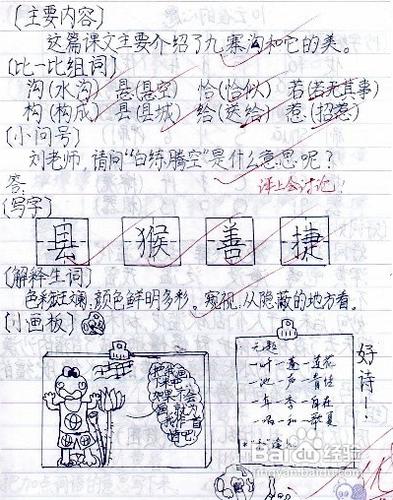 〔主要内容〕
这篇课文主要介绍了九寨沟和它的美。
〔比一比组词〕
沟(水沟) 悬(悬空) 恰(恰似) 若(若无其事)
构(构成) 县(县城) 给(送给) 惹(招惹)
〔小问号〕
刘老师,请问“白练腾空”是什么意思呢?
答: 课上会讨论!
〔写字〕
县 猴 善 捷
〔解释生词〕
色彩斑斓:颜色鲜明多彩。窥视:从隐蔽的地方看。
〔小画板〕
无题
一叶一蓬一莲花
一池一声一青蛙
一年一季一自在
一唱一和一华夏
好诗!
Baidu经验
优